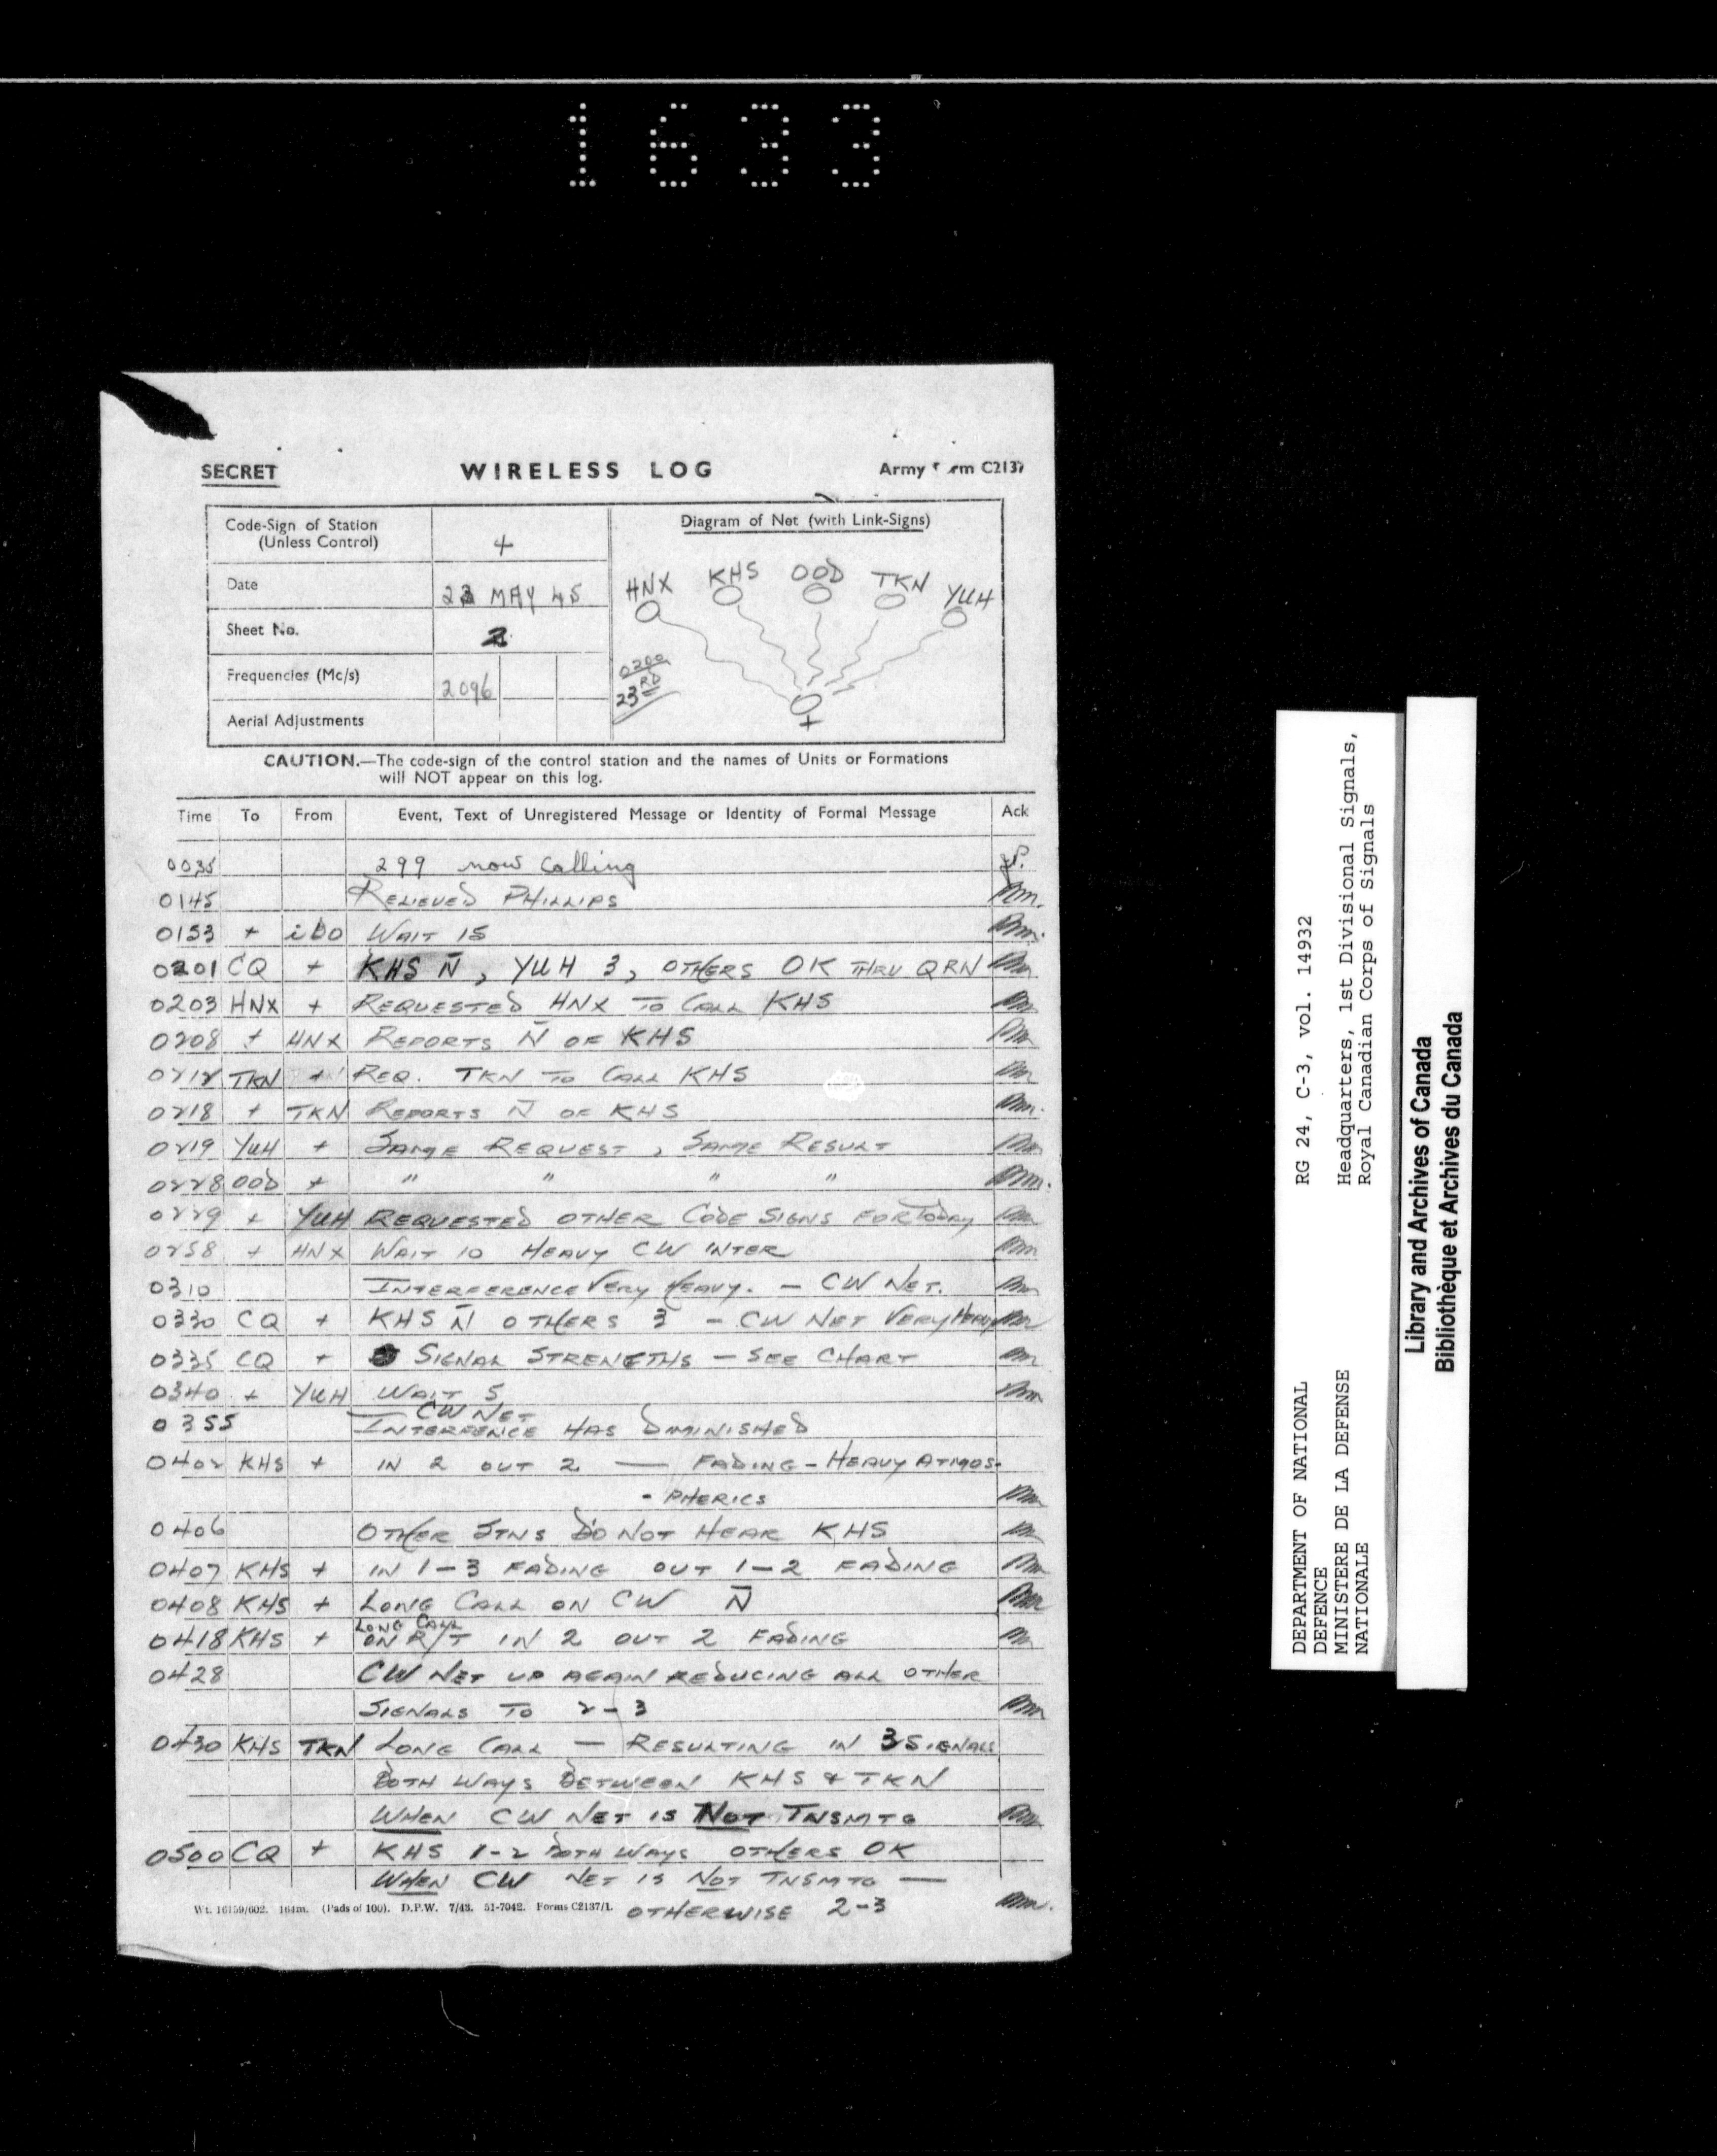 1633
SECRET WIRELESS LOG Army Form C2137
Code-Sign of Station
(Unless Control) +
Date 23 MAY 45
Sheet No. 2
Frequencies (Mc/s) 2096
Aerial Adjustments
Diagram of Net (with Link-Signs)
HNX KHS OOD TKN YUH
0200
23RD
+
CAUTION.—The code-sign of the control station and the names of Units or Formations
will NOT appear on this log.
Time To From Event, Text of Unregistered Message or Identity of Formal Message Ack
0035 299 now calling
0145 RELIEVED PHILLIPS
0153 + WAIT 15
0201 CQ + KHS N̄, YUH 3, OTHERS OK THRU QRN
0203 HNX + REQUESTED HNX TO CALL KHS
0208 + HNX REPORTS N̄ OF KHS
0212 TKN + REQ. TKN TO CALL KHS
0218 + TKN REPORTS N̄ OF KHS
0219 YUH + SAME REQUEST, SAME RESULT
0228 OOD + " " " "
0229 + YUH REQUESTED OTHER CODE SIGNS FOR TODAY
0258 + HNX WAIT 10 HEAVY CW INTER
0310 INTERFERENCE VERY HEAVY. — CW NET.
0330 CQ + KHS N̄ OTHERS 3 — CW NET VERY HEAVY
0335 CQ + SIGNAL STRENGTHS — SEE CHART
0340 + YUH WAIT 5
— CW NET
0355 INTERFENCE HAS DIMINISHED
0402 KHS + IN 2 OUT 2 — FADING - HEAVY ATMOS-
- PHERICS
0406 OTHER STNS DO NOT HEAR KHS
0407 KHS + IN 1-3 FADING OUT 1-2 FADING
0408 KHS + LONG CALL ON CW N̄
LONG CALL
0418 KHS + ON R/T IN 2 OUT 2 FADING
0428 CW NET UP AGAIN REDUCING ALL OTHER
SIGNALS TO 2-3
0430 KHS TKN LONG CALL — RESULTING IN 3 SIGNALS
BOTH WAYS BETWEEN KHS & TKN
WHEN CW NET IS NOT TNSMTG
0500 CQ + KHS 1-2 BOTH WAYS OTHERS OK
WHEN CW NET IS NOT TNSMTG —
OTHERWISE 2-3
Wt. 16159/602. 164m. (Pads of 100). D.P.W. 7/43. 51-7042. Forms C2137/1.
DEPARTMENT OF NATIONAL RG 24, C-3, vol. 14932
DEFENCE
MINISTERE DE LA DEFENSE Headquarters, 1st Divisional Signals,
NATIONALE Royal Canadian Corps of Signals
Library and Archives of Canada
Bibliothèque et Archives du Canada